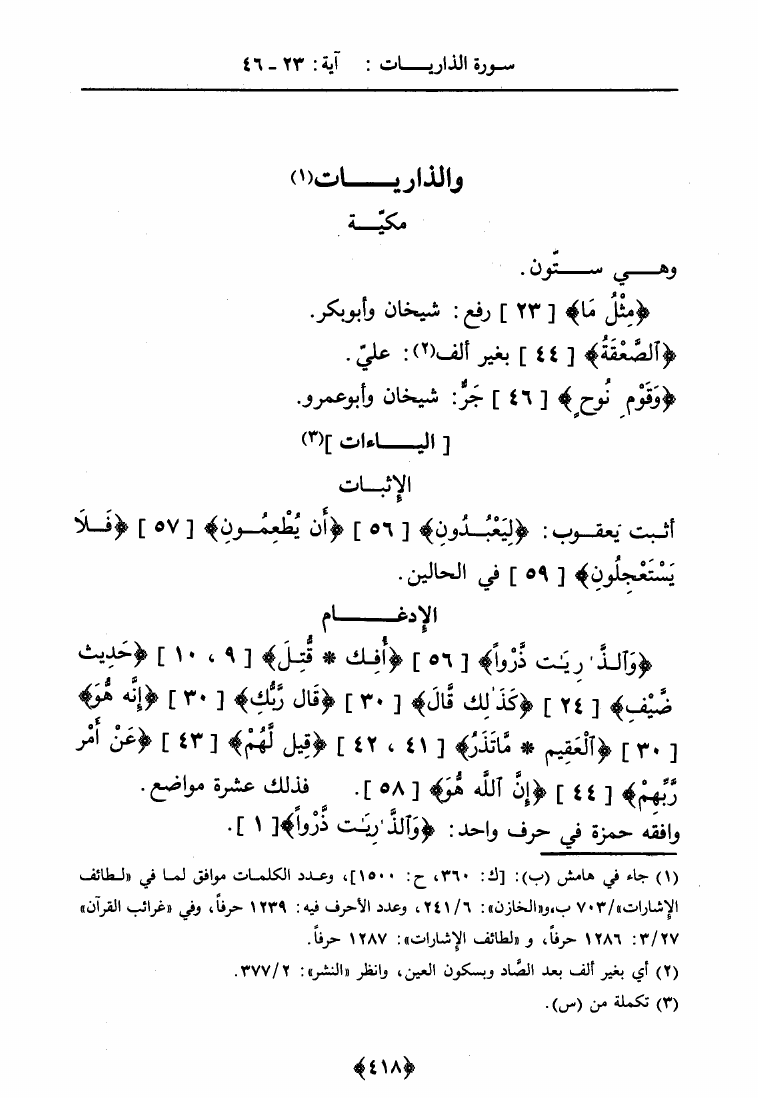 سورة الذاريات : آية: ٢٣ - ٤٦
والذاريات(١)
مكيّة
وهي ستّون.
﴿مِثْلُ مَا﴾ [ ٢٣ ] رفع: شيخان وأبوبكر.
﴿ٱلصَّعْقَةُ﴾ [ ٤٤ ] بغير ألف(٢): عليّ.
﴿وَقَوْمِ نُوحٍ﴾ [ ٤٦ ] جَرٌّ: شيخان وأبوعمرو.
[ الياءات ](٣)
الإثبات
أثبت يعقوب: ﴿لِيَعْبُدُونِ﴾ [ ٥٦ ] ﴿أَن يُطْعِمُونِ﴾ [ ٥٧ ] ﴿فَلَا
يَسْتَعْجِلُونِ﴾ [ ٥٩ ] في الحالين.
الإدغام
﴿وَٱلذَّٰرِيَٰت ذَّرْواً﴾ [ ٥٦ ] ﴿أُفِك * قُّتِلَ﴾ [ ٩ ، ١٠ ] ﴿حَدِيث
ضَّيْفِ﴾ [ ٢٤ ] ﴿كَذَٰلِك قَّالَ﴾ [ ٣٠ ] ﴿قَال رَّبُّكِ﴾ [ ٣٠ ] ﴿إِنَّه هُّوَ﴾
[ ٣٠ ] ﴿ٱلْعَقِيم * مَّاتَذَرُ﴾ [ ٤١ ، ٤٢ ] ﴿قِيل لَّهُمْ﴾ [ ٤٣ ] ﴿عَنْ أَمْر
رَّبِّهِمْ﴾ [ ٤٤ ] ﴿إِنَّ ٱللَّه هُّوَ﴾ [ ٥٨ ]. فذلك عشرة مواضع.
وافقه حمزة في حرف واحد: ﴿وَٱلذَّٰرِيَٰت ذَّرْواً﴾[ ١ ].
(١) جاء في هامش (ب): [ك: ٣٦٠، ح: ١٥٠٠]، وعدد الكلمات موافق لما في «لطائف
الإشارات»/٧٠٣ ب،و«الخازن»: ٢٤١/٦، وعدد الأحرف فيه: ١٢٣٩ حرفاً، وفي «غرائب القرآن»
٣/٢٧: ١٢٨٦ حرفاً، و «لطائف الإشارات»: ١٢٨٧ حرفاً.
(٢) أي بغير ألف بعد الصَّاد وبسكون العين، وانظر «النشر»: ٣٧٧/٢.
(٣) تكملة من (س).
﴿٤١٨﴾